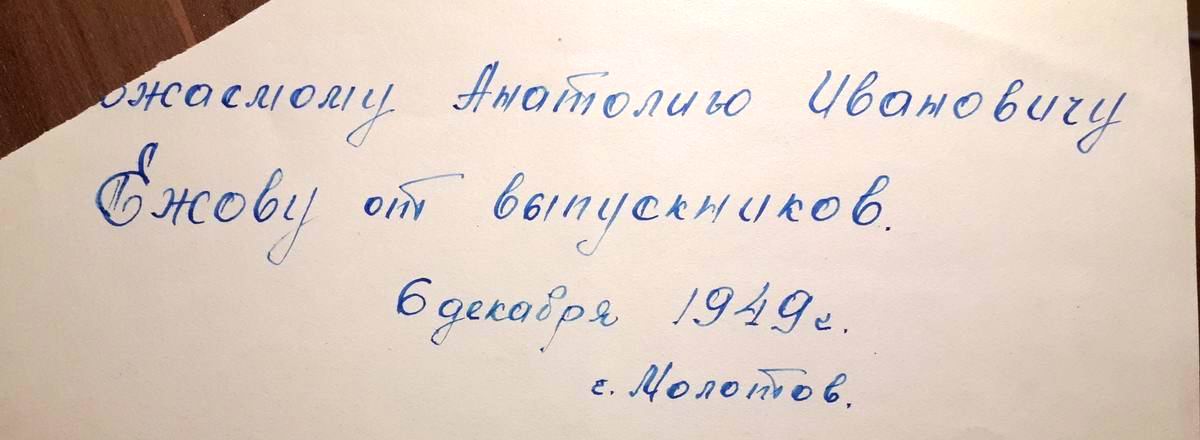 ожаемому Анатолию Ивановичу
Ежову от выпускников.
6 декабря 1949 г.
г. Молотов.